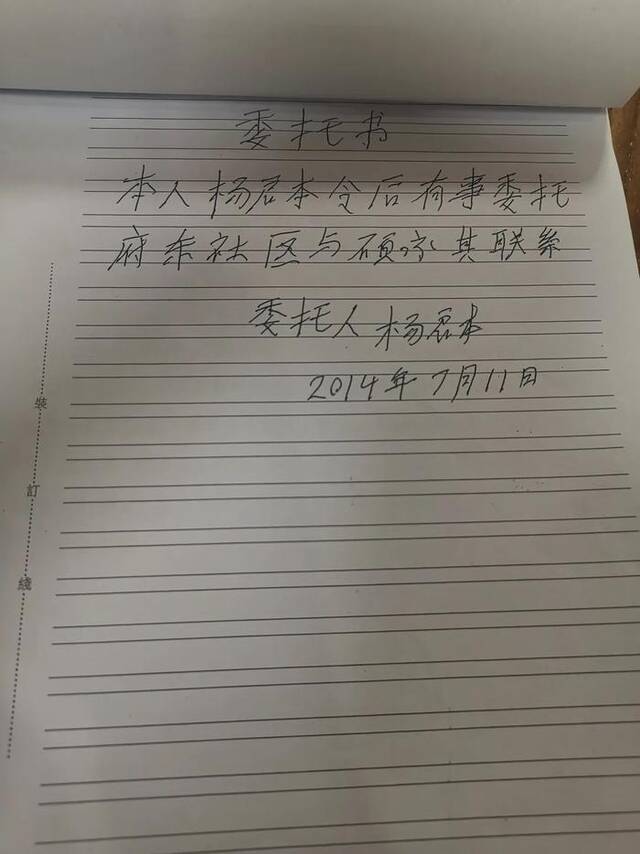 委托书
本人杨君本令后有事委托
府东社区与硕京其联系
委托人杨君本
2014年7月11日
装
訂
綫